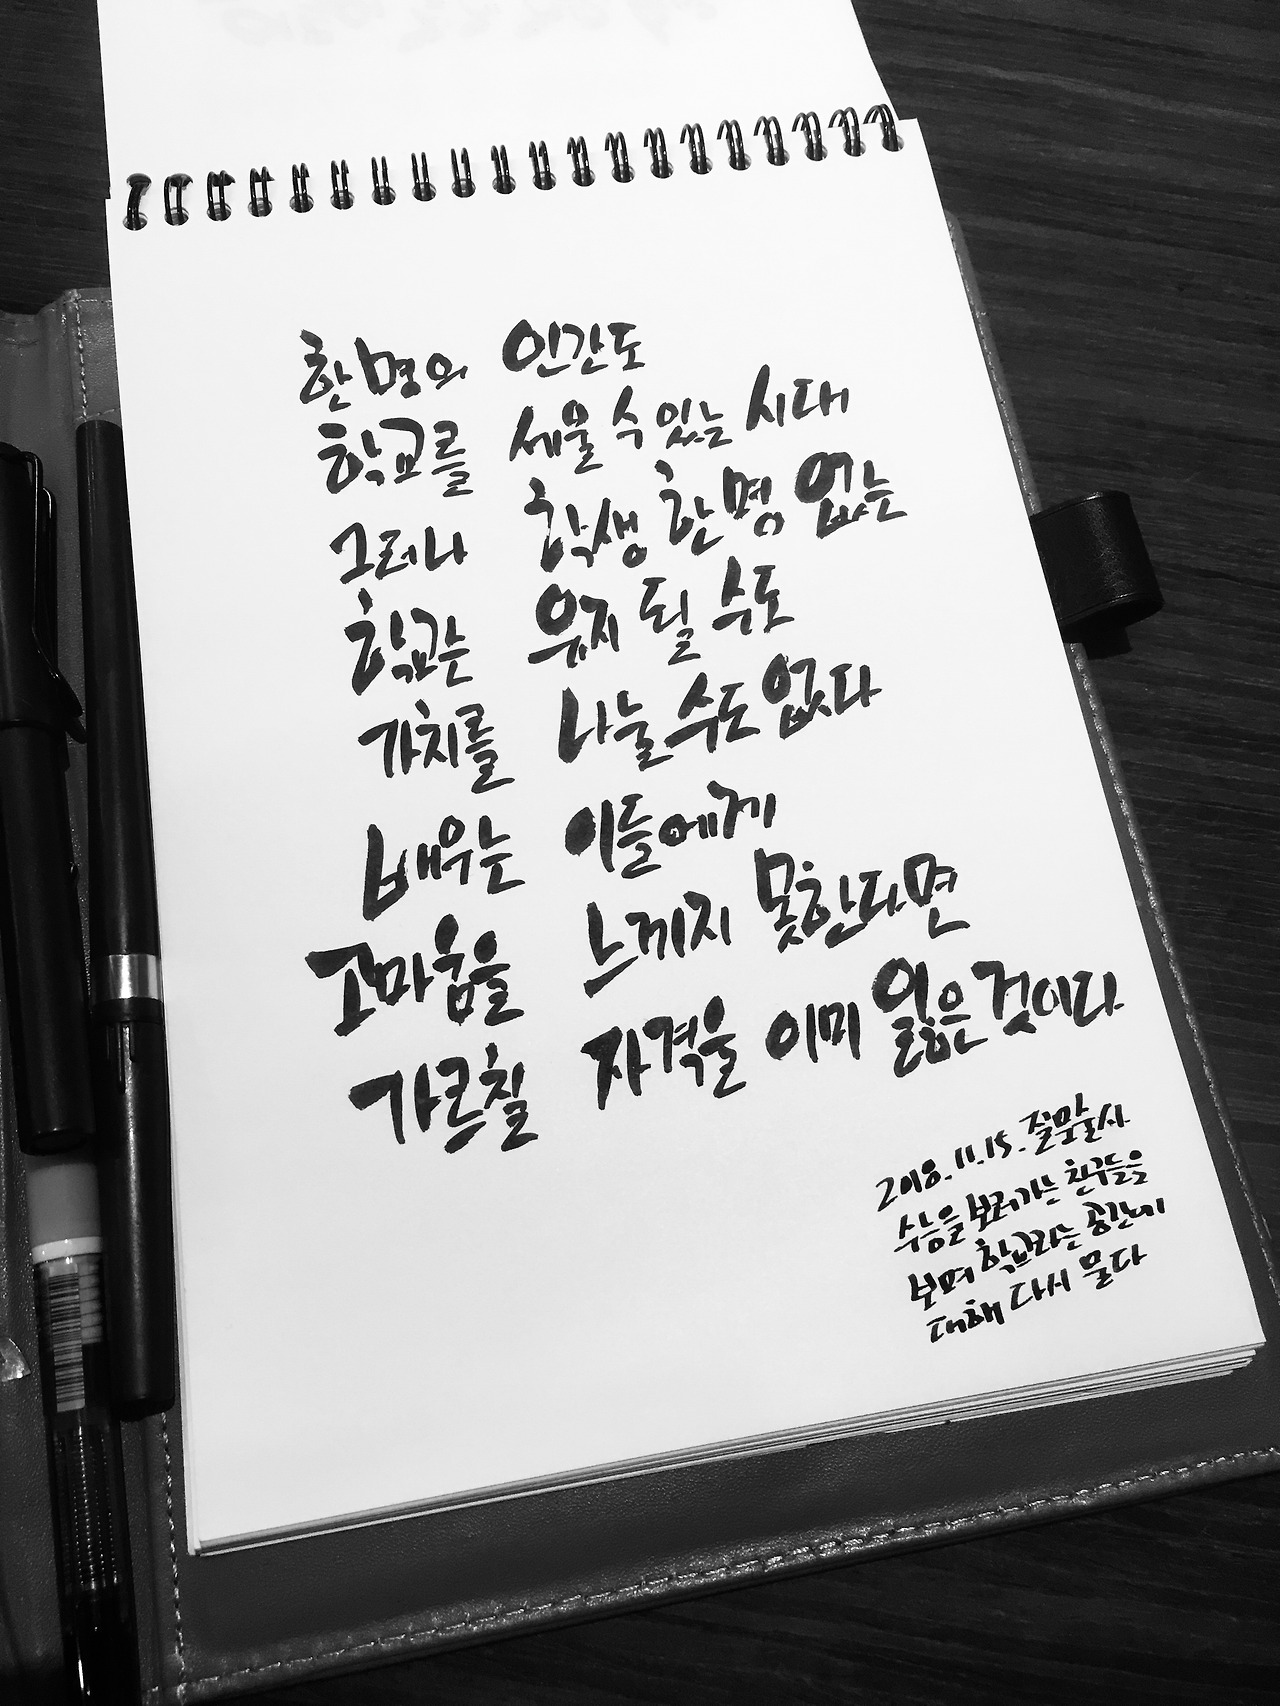 한 명의 인간도
학교를 세울 수 있는 시대
그러나 학생 한 명 없는
학교는 유지 될 수도
가치를 나눌 수도 없다
배우는 이들에게
고마움을 느끼지 못한다면
가르칠 자격을 이미 잃은 것이다
2018.11.15.
수능을 보러가는 친구들을
보며 학교라는 공간에
대해 다시 묻다